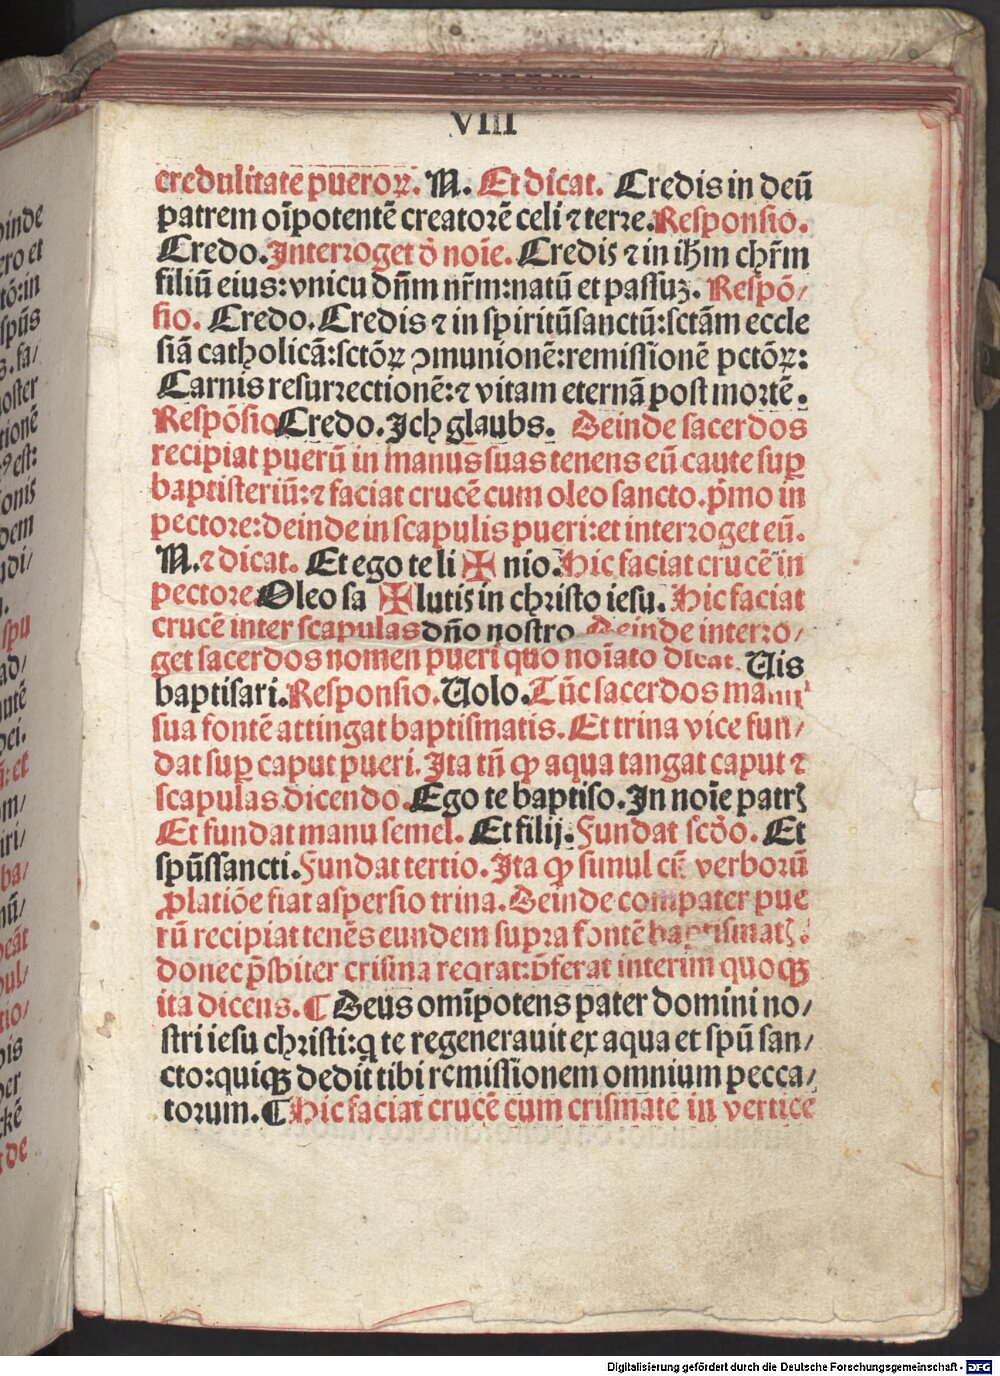 VIII
credulitate pueroꝝ. N. Et dicat. Credis in deū
patrem oīpotentē creatorē celi ⁊ terre. Responsio.
Credo. Interroget ō noīe. Credis ⁊ in ihm̄ chr̄m
filiū eius: vnicu dn̄m nr̄m: natū et passuꝫ. Respō/
sio. Credo. Credis ⁊ in spiritūsanctū: sctām eccle
siā catholicā: sctōꝝ ꝯmunionē: remissionē pctōꝝ:
Carnis resurrectionē: ⁊ vitam eternā post mortē.
Respōsio Credo. Ich glaubs. Deinde sacerdos
recipiat puerū in manus suas tenens eū caute suꝑ
baptisteriū: ⁊ faciat crucē cum oleo sancto. p̄mo in
pectore: deinde in scapulis pueri: et interroget eū.
N. ⁊ dicat. Et ego te li ✠ nio. Hic faciat crucē in
pectore Oleo sa ✠ lutis in christo iesu. Hic faciat
crucē inter scapulas dn̄o nostro Deinde interro/
get sacerdos nomen pueri quo noīato dicat. Uis
baptisari. Responsio. Uolo. Tūc sacerdos manu
sua fontē attingat baptismatis. Et trina vice fun/
dat suꝑ caput pueri. Ita tn̄ ꝙ aqua tangat caput ⁊
scapulas dicendo. Ego te baptiso. In noīe patrꝭ
Et fundat manu semel. Et filij. Fundat scd̄o. Et
spūssancti. Fundat tertio. Ita ꝙ simul cū verborū
ꝓlatiōe fiat aspersio trina. Deinde compater pue
rū recipiat tenēs eundem supra fontē baptismatꝭ.
donec p̄sbiter crisma reqrat: p̄ferat interim quoqꝫ
ita dicens. ¶ Deus omīpotens pater domini no/
stri iesu christi: q te regenerauit ex aqua et spū san/
cto: quiqꝫ dedit tibi remissionem omnium pecca/
torum. ¶ Hic faciat crucē cum crismate in vertice
Digitalisierung gefördert durch die Deutsche Forschungsgemeinschaft - DFG